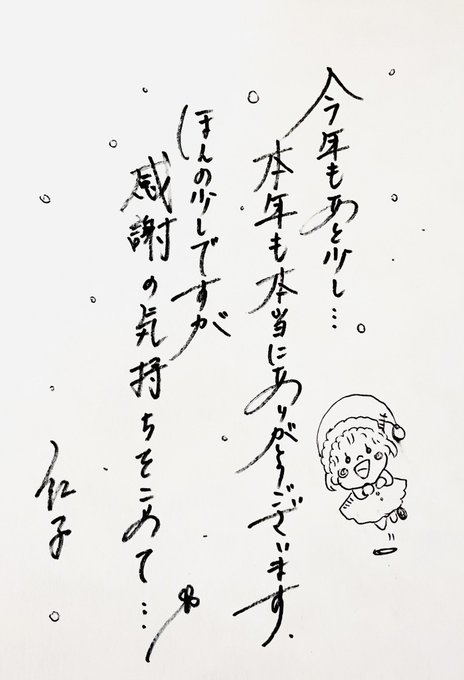 今年もあと少し…
本年も本当にありがとうございます.
ほんの少しですが
感謝の気持ちをこめて…
仁子